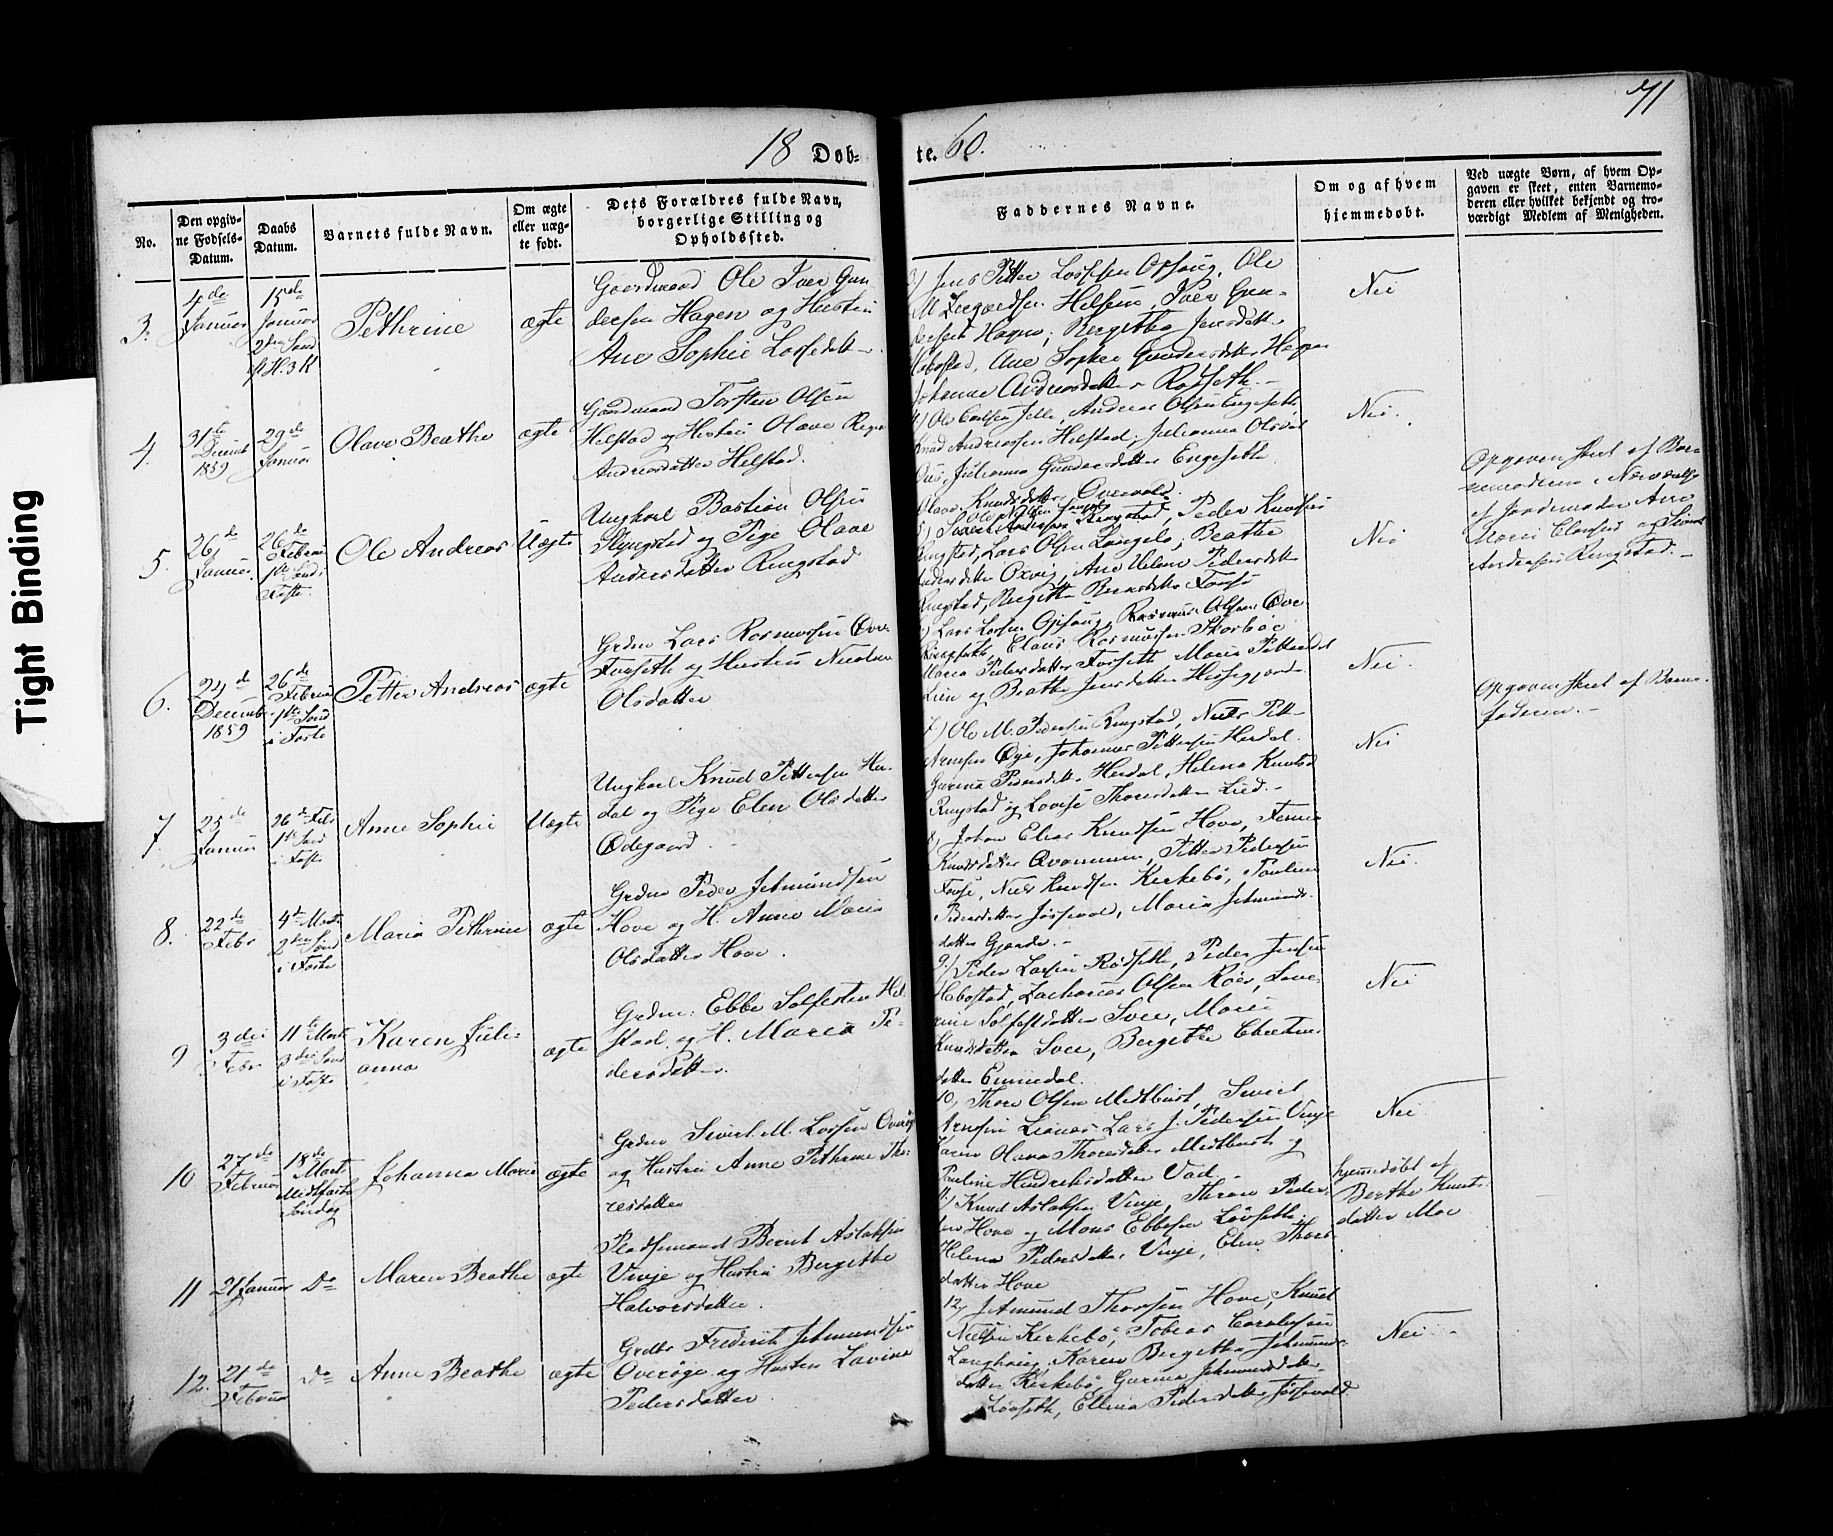 71
18 Døb-
te. 60.
No.
Den opgiv-
ne Fødsels-
Datum.
Daabs
Datum.
Barnets fulde Navn.
Om ægte
eller uæg-
te født.
Dets Forældres fulde Navn,
borgerlige Stilling og
Opholdssted.
Faddernes Navne.
Om og af hvem
hjemmedøbt.
Ved uægte Børn, af hvem Op-
gaven er skeet, enten Barnemo-
deren eller hvilket bekjendt og tro-
værdigt Medlem af Menigheden.
3.
4de
Januar
15de
Januar
2den Sønd
Pethrine
ægte
Gaardmand Ole Iver Gun
dersen Hagen og Hustru
Ane Sophie Lassedatter
3) Jens Petter Larssen Opsaug, Ole
Iver Gun-
dersen Hagen, Bergitha Jensdatter
Ane Sophie Gundersdatter Hagen
Johanne Andreasdatter Rødseth.
Nei
4.
31te
Decemb
1859
29de
Januar
Olave Beathe
ægte
Gaardmand Torsten Olsen
Helstad og Hustru Olave
Andreasdatter Helstad.
4) Ole Andreas Olsen Engeseth,
Knud Andreassen Helstad, Julianna Olsdat
Julianna Gundersdatter Engeseth
Olave Knudsdatter Overvold.
Nei.
5.
26de
Januar.
26de
Februar
1ste Sønd i
Faste.
Ole Andreas
Uægte
Ungkarl Bastian Olsen
Ringstad og Pige Olave
Andersdatter Ringstad
Ringstad, Peder Knudsen
Ringstad, Lars Olsen Langelo, Beathe
Andersdatter Oxvig, Ane Helene Pedersdatter
Ringstad, Bergitte Berntsdatter
Nei
Opgaven skeet af Bar-
nemoderen i Nærværelse
af Jordemoder Ane
Marie og Sivert
Andersen Ringstad.
6.
24de
Decemb.
1859
26de
Februar
1ste Sønd
i Faste
Petter Andreas
ægte
Grdm Lars Rasmussen Øvre
Fausseth og Hustru Nicoline
Olsdatter
6) Lars Larsen Opsaug, Rasmus Olsen Øvre
Ringseth, Claus Rasmussen Skorbøe
Maria Pedersdatter Forseth Maria Pettersdat
Lien og Beathe Jensdatter
Nei.
7
25de
Januar
26de Febr
1ste Sønd
i Faste
Anne Sophie
Uægte
Ungkarl Knud Pettersen Her-
dal og Pige Elen Olsdatter
Ødegaard.
7) Ole M. Pedersen Ringstad, Niels Pett-
Arnesen Øye, Johannes Pettersen Herdal.
Gurina Pedersdatter Herdal, Helena Knutsd
Ringstad og Lovise Thoresdatter Lied.
Nei
Opgaven skeet af Barne-
faderen.
8.
22de
Febr
4de Marts
2den Sønd
i Faste
Maria Pethrine
ægte
Grdm Peder Jetmundsen
Hove og H. Anne Maria
Olsdatter Hove.
8) Johan Elias Knudsen Hove,
Knudsdatter Petter Pedersen
Niels Knudsen Kirkebø, Pauline
Pedersdatter Maria Jetmunds-
datter Gjærde.
Nei.
9
3die
Febr
11te Marts
3die Sønd
i Faste
Karen Juli-
anna
ægte
Grdm: Ebbe Solfesten Hel-
stad og H. Maria Pe-
dersdatter.
9) Peder Larsen Rødseth, Peder Jensen
Habostad, Zacharias Olsen Roes,
Solfestdatter Svee, Marie
Knudsdatter Svee, Bergithe Christens
datter Emmedal.
Nei
10
27de
Februar
18de
Marts
Midtfaste
Søndag
Johanna Maria
ægte
Grdm Sivert M. Larsen Overøie
og Hustru Anne Pethrine Tho-
resdatter
10, Thore Olsen Midtbust, Sivert
Arnesen Lars J. Pedersen Vinje
Karen Olava Thoresdatter Midtbust og
Pauline Hendriksdatter Vad.
Nei
11
21 Januar
Do
Maren Beathe
ægte
Pladsmand Bernt Aslaksen
Vinje og Hustru Bergithe
Halvorsdatter.
11) Knud Aslaksen Vinje, Thron Peder-
sen Hove og Mons Ebbesen Løvseth,
Helena Pedersdatter Vinje, Elen Thors
datter Hove
hjemmedøbt af
Berthe Knuts-
datter Moe
12.
21de
Februar
Do
Anne Beathe
ægte
Grdbr Frederik Jetmundsen
Overøye og Hustru Lavina
Pedersdatter
12, Jetmund Thorsen Hove, Knud
Nielsen Kirkebø, Tobias
Langhaug, Karen Bergitha Jetmunds-
datter Kirkebø, Gurina Jetmundsdatter
Løvseth, Ellina Pedersdatter
Nei.
Tight Binding